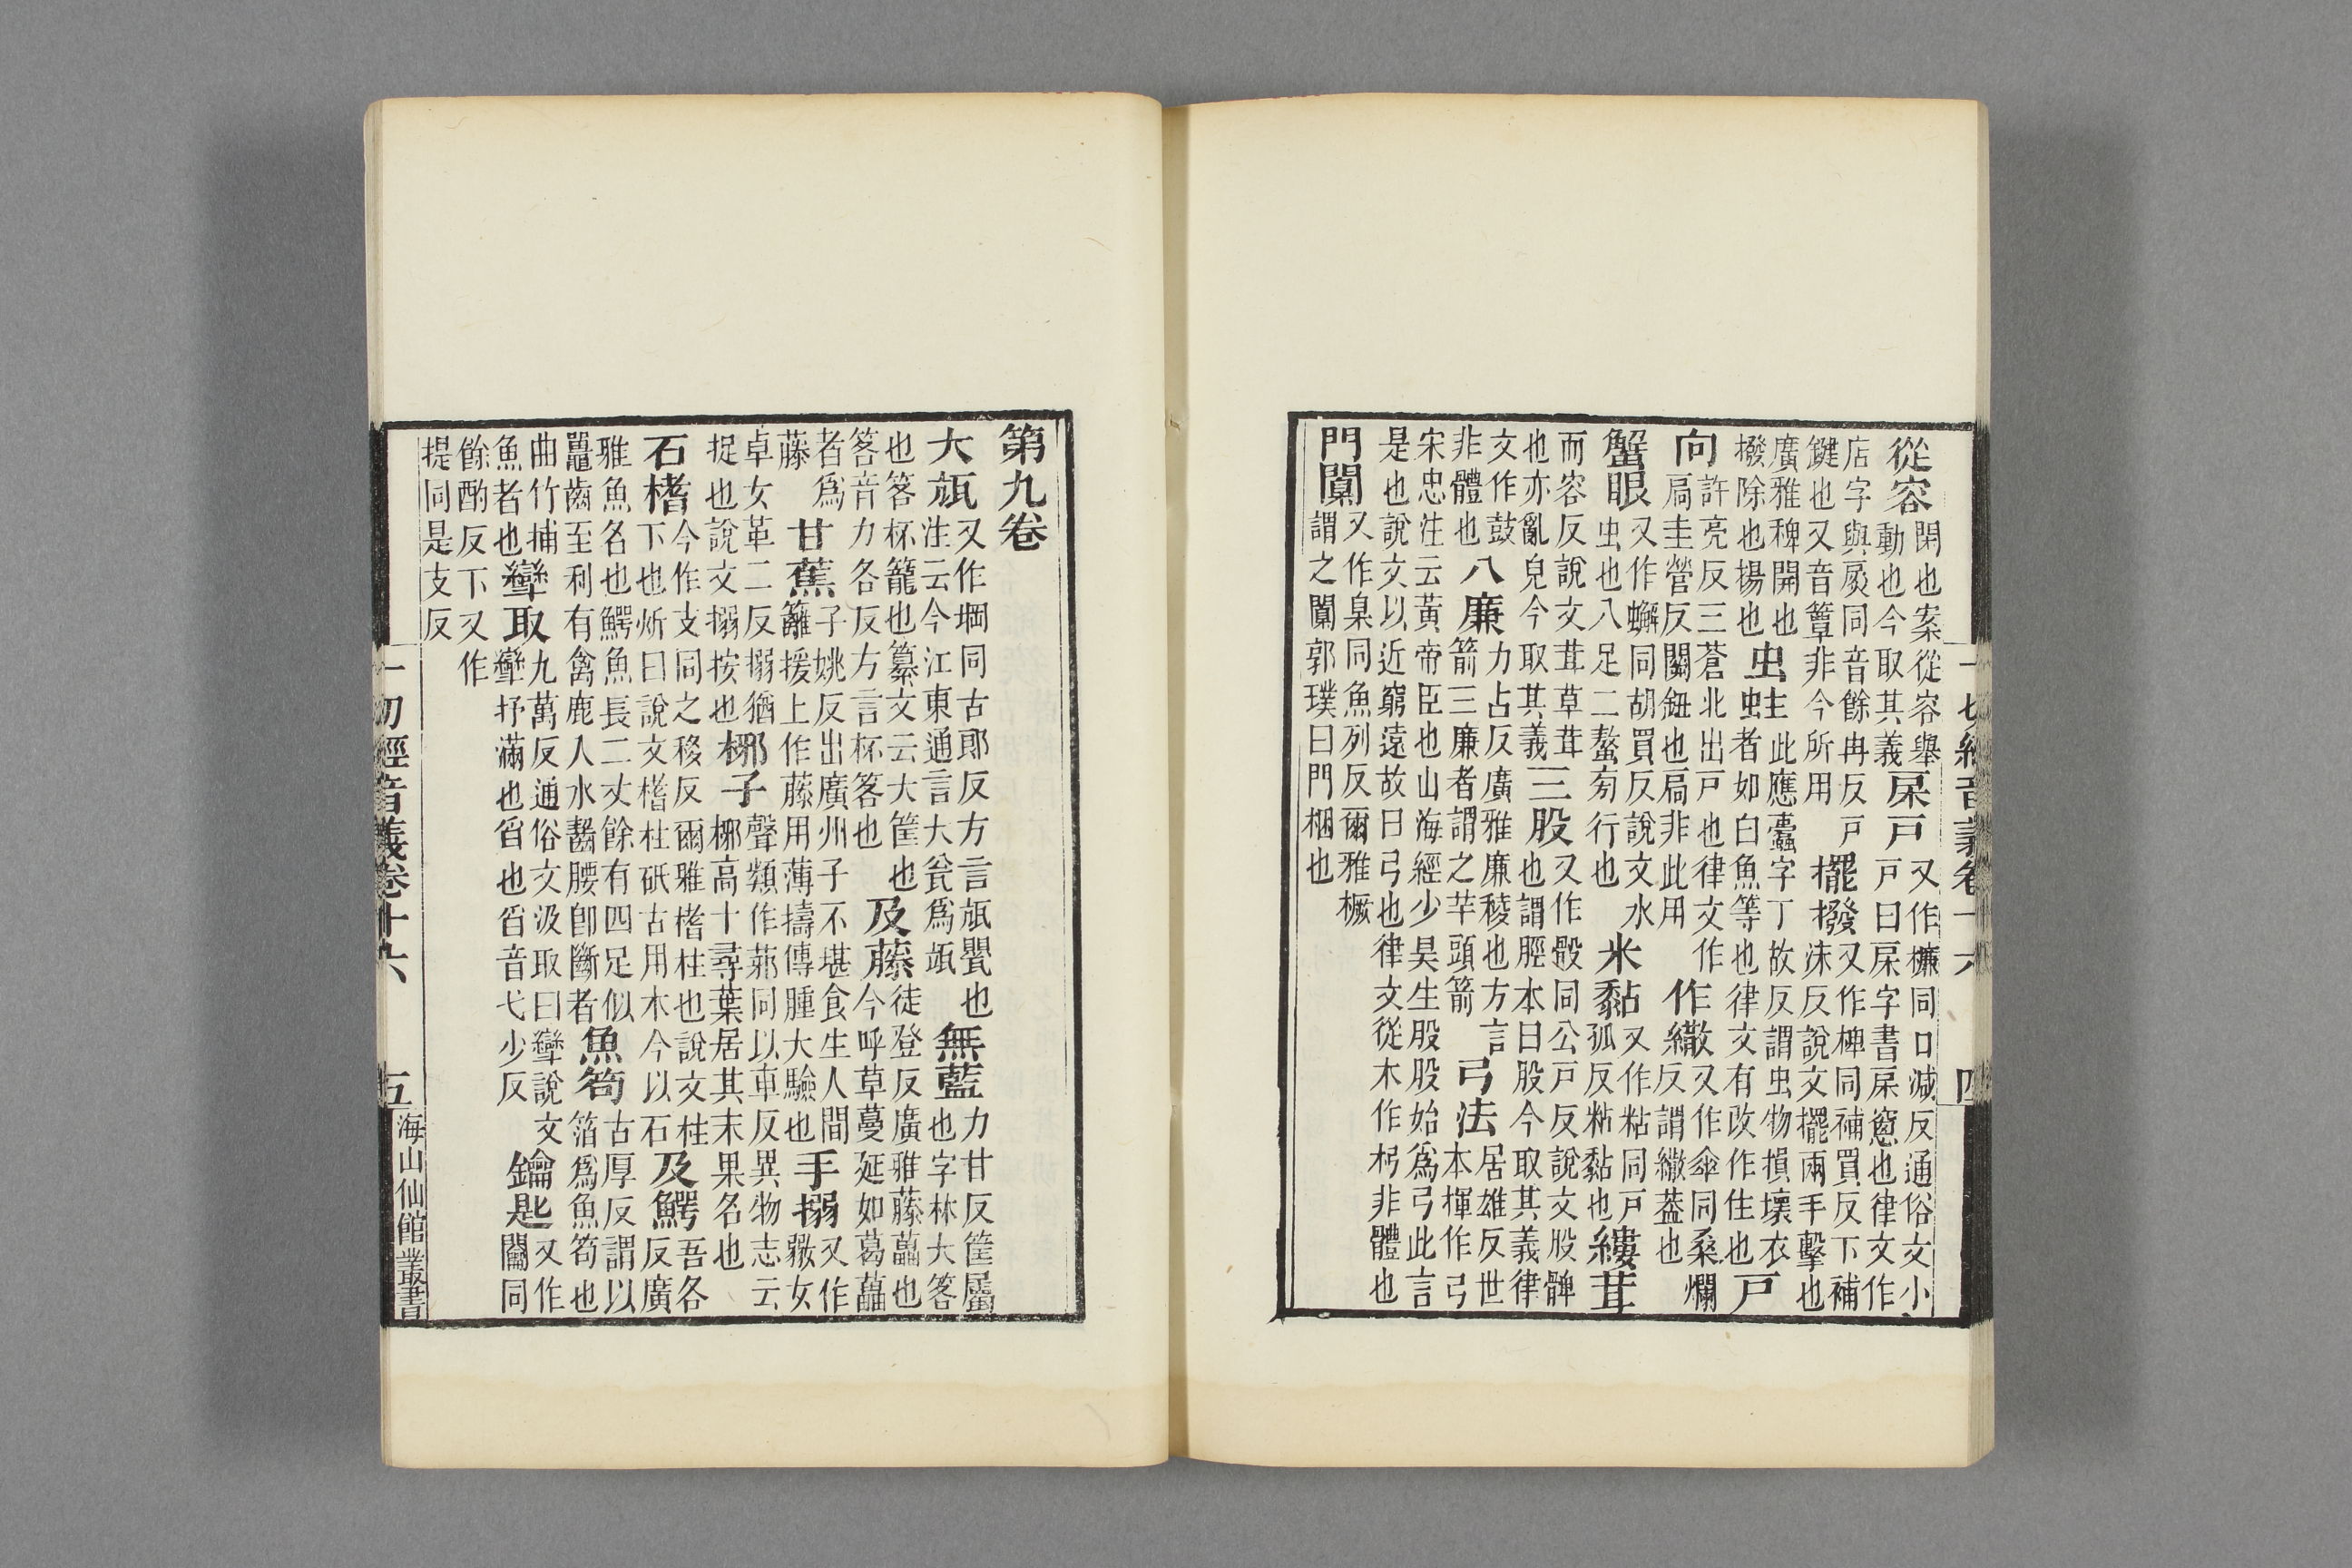 一切經音義卷十六 四
從容閑也案從容舉動也今取其義㞒戶又作槏同口減反通俗文小戶曰㞒字書㞒窻也律文作
店字與扊同音餘冉反戶鍵也又音簟非今所用擺撥又作捭同補買反下補沫反說文擺兩手擊也
廣雅稗開也撥除也揚也虫蛀此應蠹字丁故反謂虫物損壞衣者如白魚等也律文有改作住也戶
向許亮反三蒼北出戶也律文作扃圭營反關鈕也扃非此用作繖又作傘同桑爛反謂繖蓋也
蟹眼又作蠏同胡買反說文水虫也八足二螯旁行也米黏又作粘同戶孤反粘黏也縷茸
而容反說文茸草茸也亦亂皃今取其義三股又作骰同公戶反說文股髀也謂脛本曰股今取其義律
文作鼓非體也八廉力占反廣雅廉稜也方言箭三廉者謂之羊頭箭弓法居雄反世本揮作弓
宋忠注云黃帝臣也山海經少昊生股股始爲弓此言是也說文以近窮遠故曰弓也律文從木作杛非體也
門闑又作臬同魚列反爾雅橛謂之闑郭璞曰門梱也
第九卷
大瓨又作堈同古郞反方言瓨甖也注云今江東通言大瓮爲瓨無藍力甘反筐屬也字林大笿
也笿杯籠也纂文云大筐也笿音力各反方言杯笿也及藤徒登反廣雅藤藟也今呼草蔓延如葛藟
者爲藤甘蕉子姚反出廣州子不堪食生人間籬援上作藤用薄擣傅腫大驗也手搦又作女
卓女革二反搦猶捉也說文搦按也梛子聲類作同以車反異物志云梛高十尋葉居其末果名也
石榰今作支同之移反爾雅榰柱也說文柱下也炘曰說文榰柱砥古用木今以石及鰐吾各反廣
雅魚名也鰐魚長二丈餘有四足似鼉齒至利有禽鹿人水齧腰卽斷者魚笱古厚反謂以箔爲魚笱也
曲竹捕魚者也㪻取九萬反通俗文汲取曰㪻說文㪻抒滿也舀也舀音弋少反鑰匙又作闟同
餘酌反下又作提同是支反
一切經音義卷十六 五 海山仙館叢書